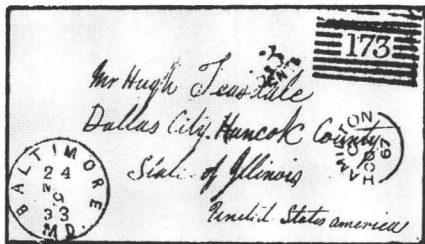 173
Mr Hugh Teasdale
Dallas City. Hancok County
State of Illinois
United States america
BALTIMORE
24
NO
33
MD.